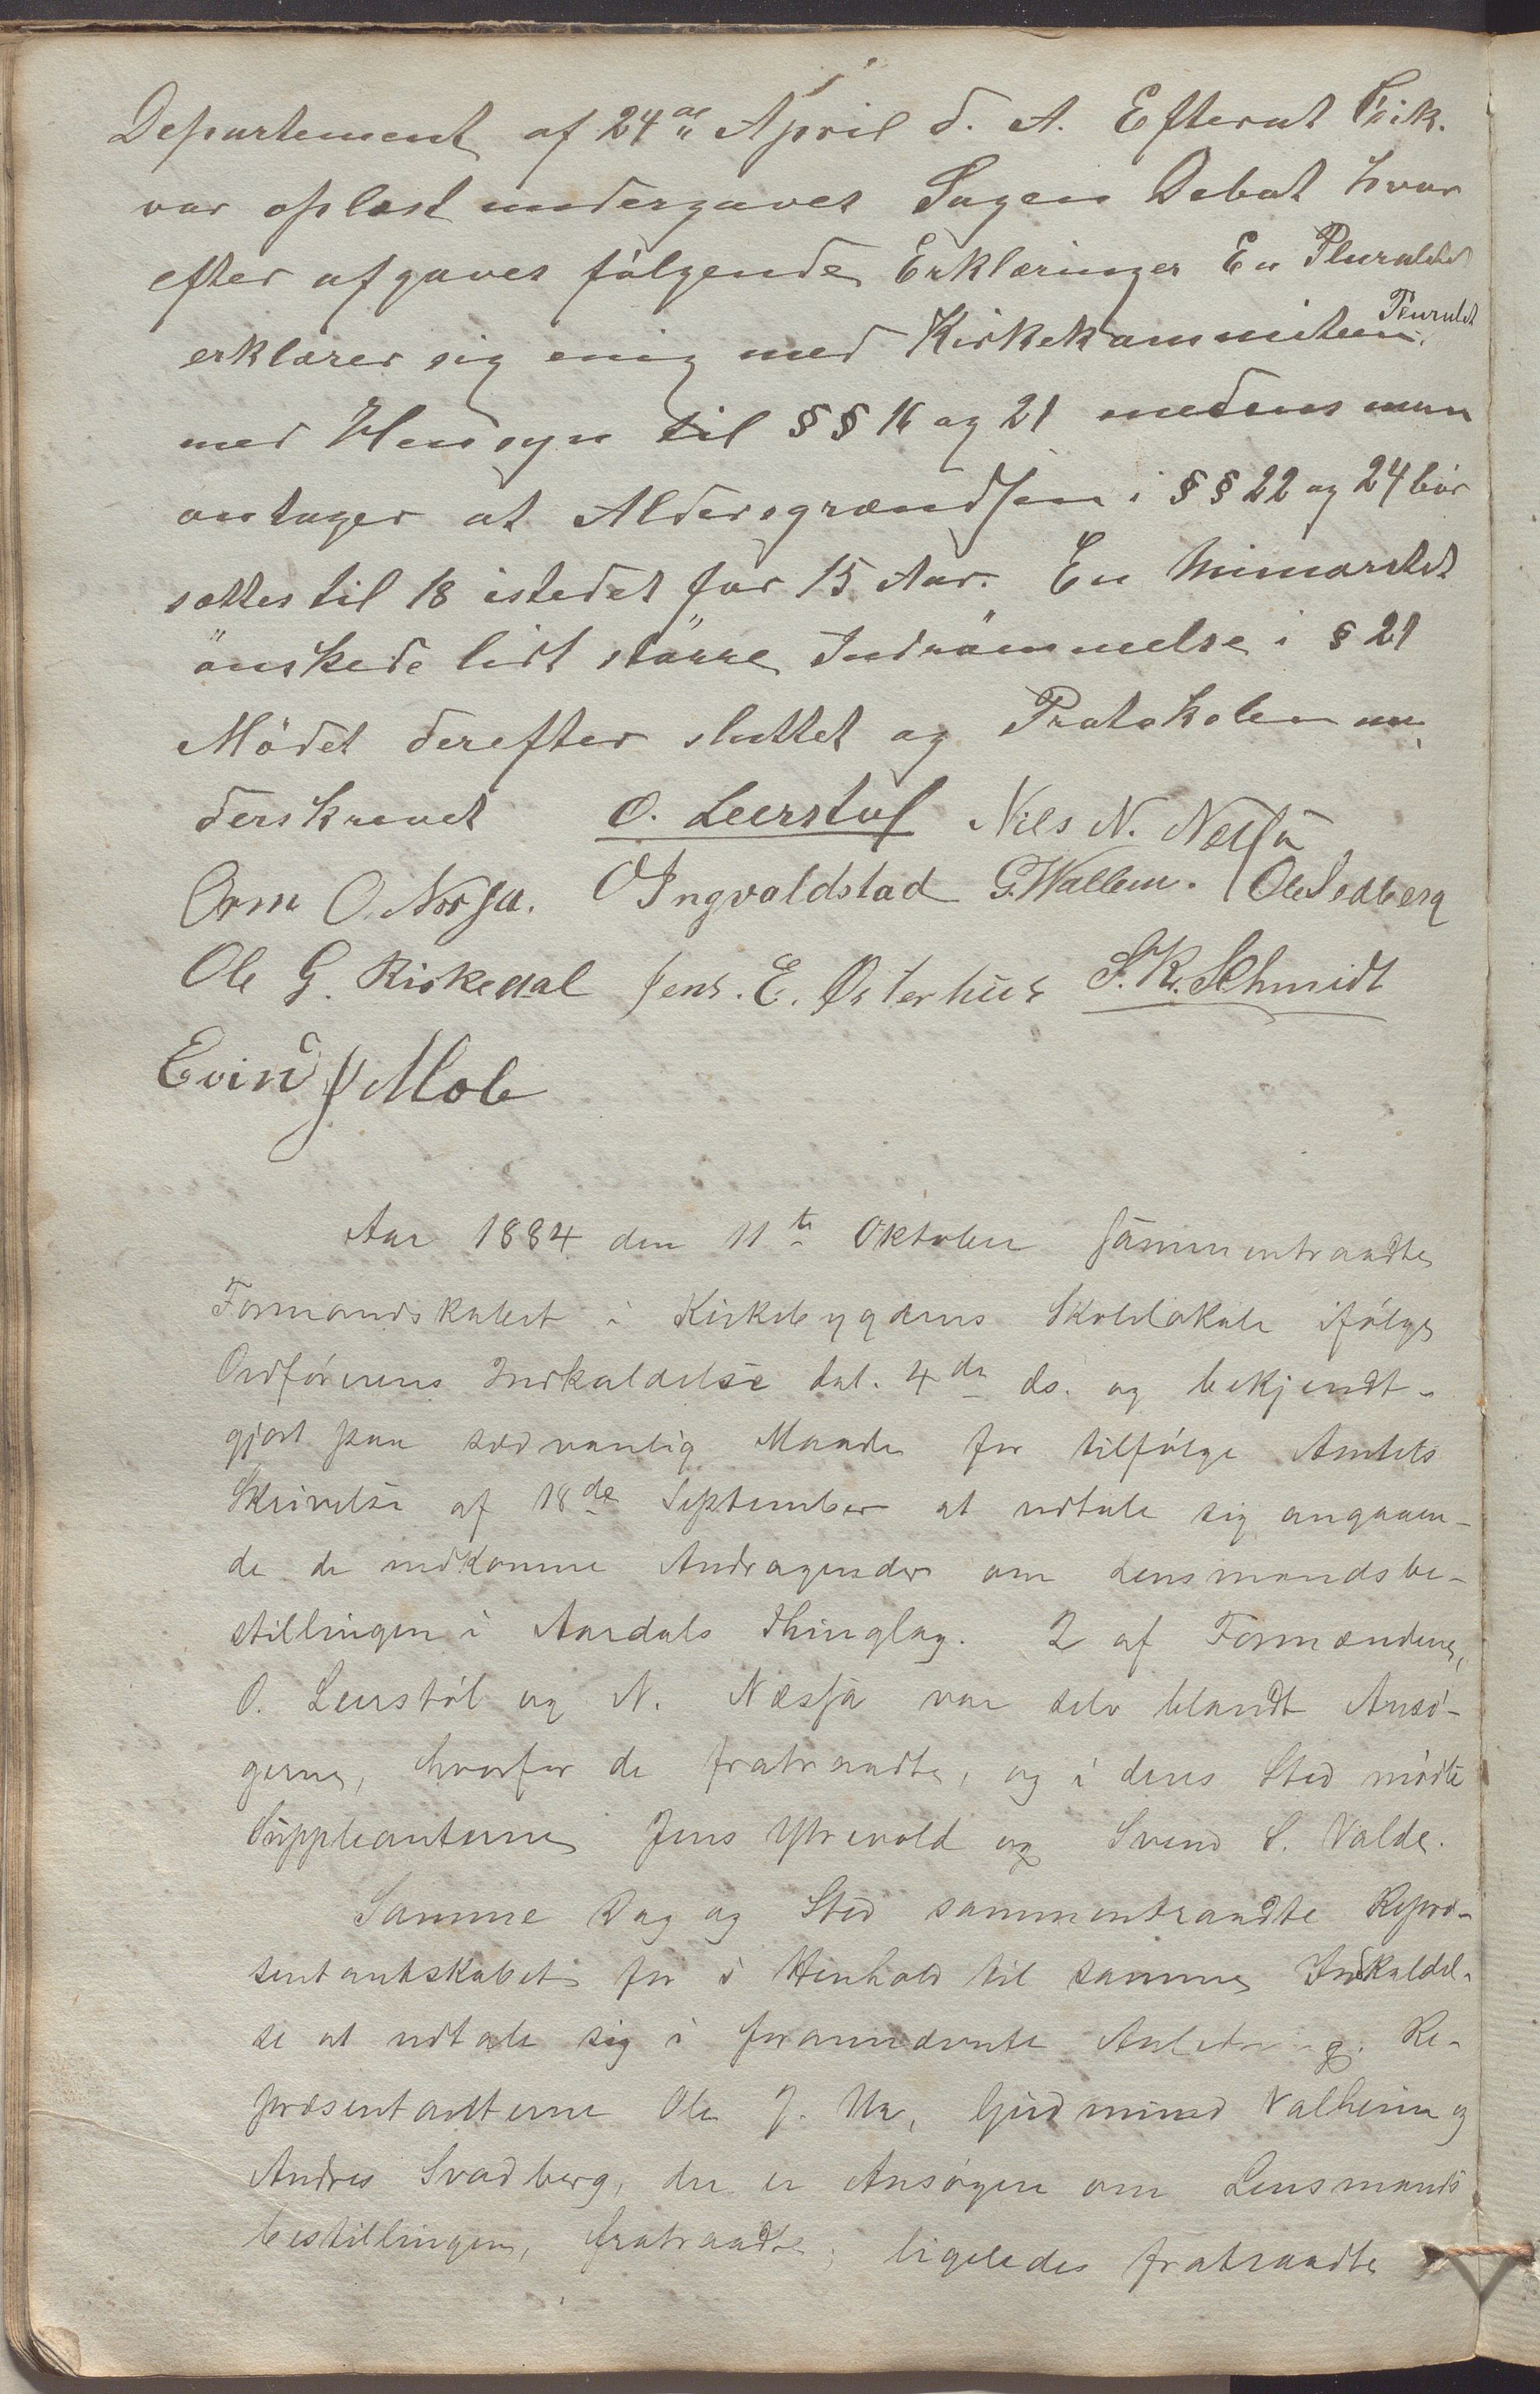 Departement af 24de April d. A. Efterat Skr.
var oplæst undergaves Sagen Debat hvor
efter afgaves følgende Erklæringer En Pluralitet
erklærer sig enig med Kirkekommiteens Pluralitet
med Hensyn til §§ 16 og 21 medens man
antager at Aldersgrændsen i §§ 22 og 24 bör
sættes til 18 istedet for 15 Aar. En Minoritet
önskede lidt större Indrömmelse i § 21
Mödet derefter sluttet og Protokolen un-
derskrevet O. Leerstøl Nils N. Nessa
Orm O. Nessa. O Ingvaldstad G. Wallem. Ole Sedberg
Ole G. Riskedal Jens. E. Østerhus S. K. Schmidt
Evind J Mæle
Aar 1884 den 11te Oktober sammentraadte
Formandskabet i Kirkebygdens Skolelokale ifølge
Ordførerens Indkaldelse dat. 4de ds. og bekjendt-
gjort paa sædvanlig Maade for tilfølge Amtets
Skrivelse af 18de September at udtale sig angaaen-
de de indkomne Andragender om Lensmandsbe-
stillingen i Aardals Thinglag. 2 af Formændene,
O. Leerstøl og N. Næsja var selv blandt Ansø-
gerne, hvorfor de fratraadte, og i deres Sted mødte
Suppleanterne Jens Ytrevold og Svend S. Valde.
Samme Dag og Sted sammentraadte Repræ-
sentantskabet for i Henhold til samme Indkaldel-
se at udtale sig i forannævnte Anledning. Re-
præsentanterne Ole J. Ur, Gudmund Valheim og
Andres Svadberg, der er Ansøgere om Lensmands
bestillingen, fratraadte; ligeledes fratraadte